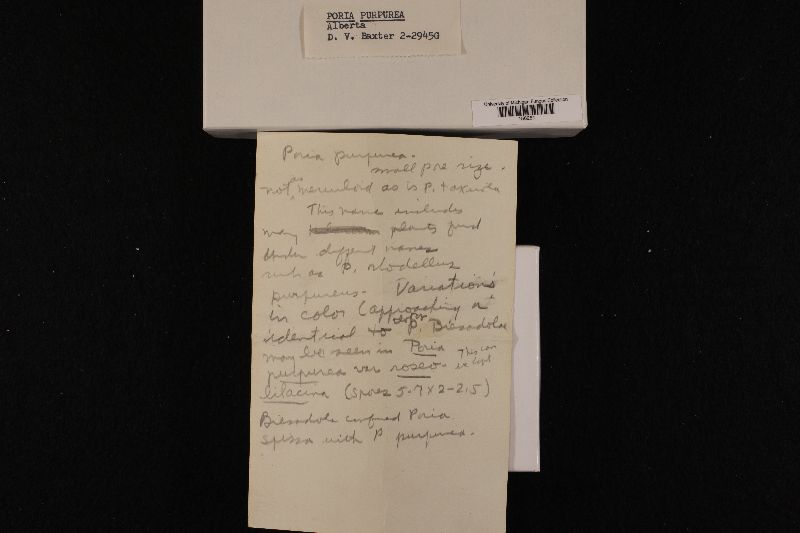 PORIA PURPUREA
Alberta
D. V. Baxter 2-29450
University of Michigan Fungus Collection
Poria purpurea.
small pore size.
not as meruloid as is P. taxicola
This names includes
many plants found
under different names
such as P. rhodellus
purpureus. Variations
in color (approaching or
identical to P. Bresadolae
may be seen in Poria
purpurea var roseo-
lilacina (spores 5-7 x 2-2.5)
This can
be kept
Bresadola confused Poria
spissa with P purpurea.